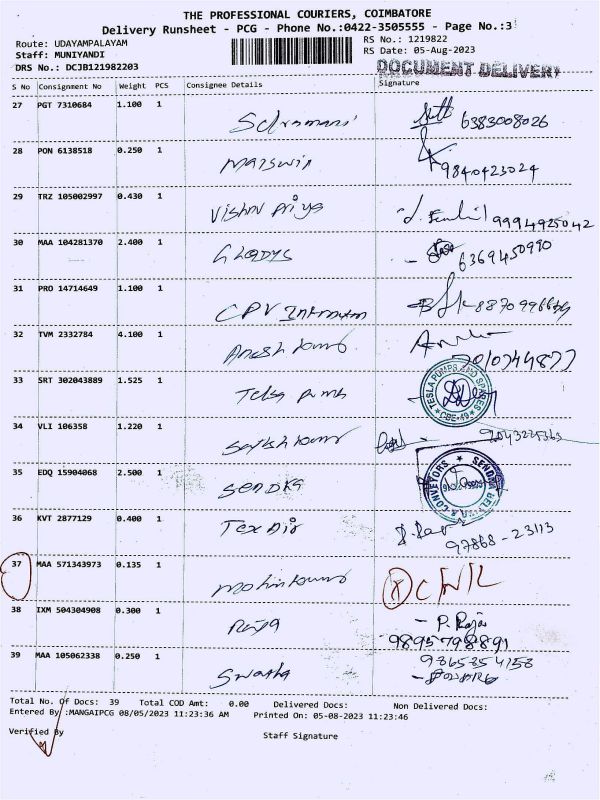 THE PROFESSIONAL COURIERS, COIMBATORE
Delivery Runsheet - PCG - Phone No.:0422-3505555 - Page No.:3
Route: UDAYAMPALAYAM
RS No.: 1219822
Staff: MUNIYANDI
RS Date: 05-Aug-2023
DRS No.: DCJB121982203
DOCUMENT DELIVERY
S No Consignment No Weight PCS Consignee Details Signature
27 PGT 7310684 1.100 1
6383008026
28 PON 6138518 0.250 1
9840423024
29 TRZ 105002997 0.430 1 Vishnu Priya
9994925042
30 MAA 104281370 2.400 1 GLADYS
6369450990
31 PRO 14714649 1.100 1 CPV
32 TVM 2332784 4.100 1
33 SRT 302043889 1.525 1 Telsa Pumb
TESLA PUMPS AND SPARES
CBE-49
34 VLI 106358 1.220 1 Satish Kumar
35 EDQ 15904068 2.500 1
36 KVT 2877129 0.400 1 Tex Air
97868-23113
37 MAA 571343973 0.135 1 Mohinkumar
38 IXM 504304908 0.300 1
P. Raja
9895798891
39 MAA 105062338 0.250 1 Swatha
9865354158
Total No. Of Docs: 39 Total COD Amt: 0.00 Delivered Docs: Non Delivered Docs:
Entered By :MANGAIPCG 08/05/2023 11:23:36 AM Printed On: 05-08-2023 11:23:46
Verified By
Staff Signature